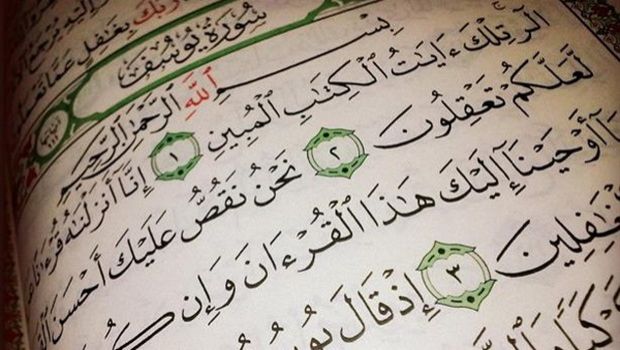 إِلَيْهِ يُرْجَعُ
رَبُّكَ بِغَٰفِلٍ عَمَّا
سُورَةُ يُوسُفَ
بِسْمِ اللَّهِ الرَّحْمَٰنِ الرَّحِيمِ
الٓر تِلْكَ ءَايَٰتُ ٱلْكِتَٰبِ ٱلْمُبِينِ ١ إِنَّآ أَنزَلْنَٰهُ قُرْءَٰنًا
لَّعَلَّكُمْ تَعْقِلُونَ ٢ نَحْنُ نَقُصُّ عَلَيْكَ أَحْسَنَ
أَوْحَيْنَآ إِلَيْكَ هَٰذَا ٱلْقُرْءَانَ وَإِن
ٱلْغَٰفِلِينَ ٣ إِذْ قَالَ